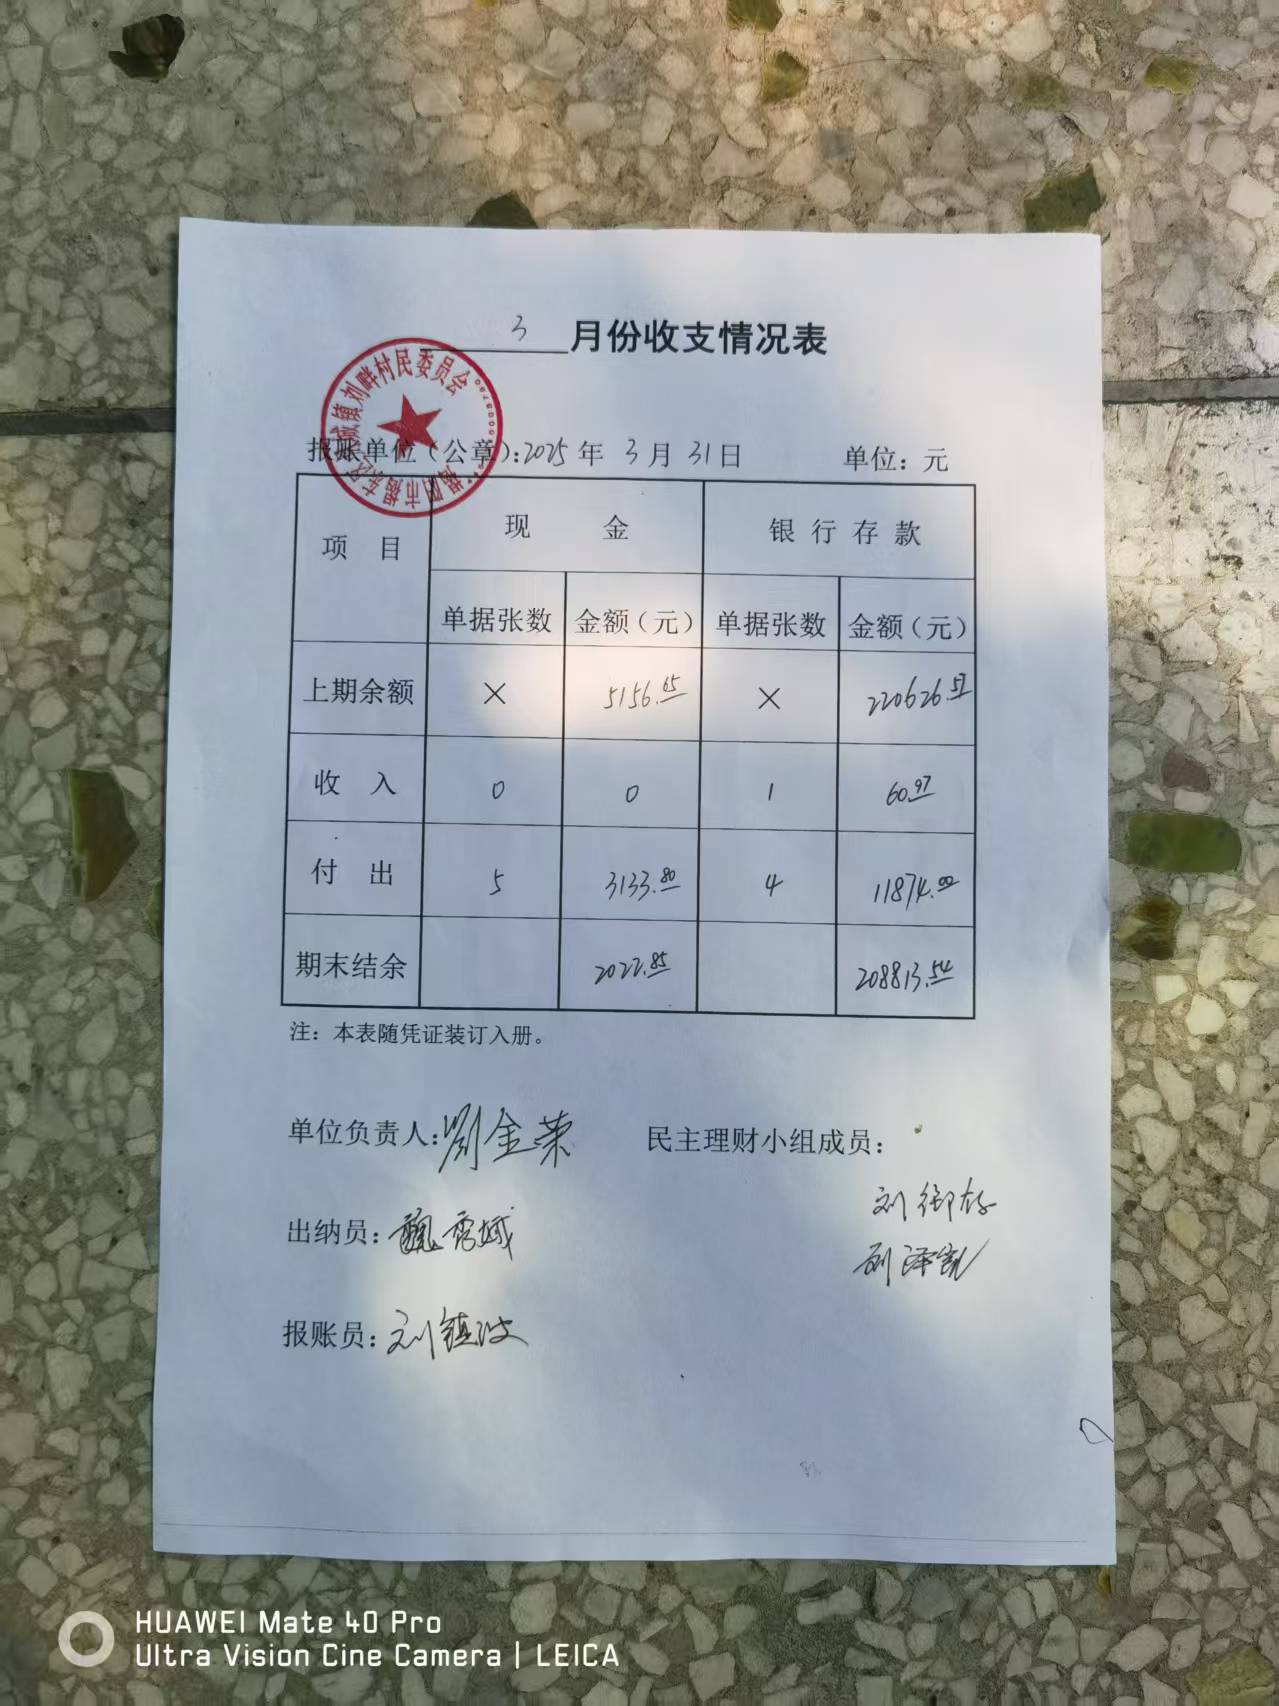 3 月份收支情况表
揭阳市揭东区玉城镇刘畔村民委员会
报账单位（公章）：2025 年 3 月 31 日 单位：元
项 目 现 金 银 行 存 款
单据张数 金额（元） 单据张数 金额（元）
上期余额 × 5156.65 × 220626.57
收 入 0 0 1 60.97
付 出 5 3133.80 4 11874.00
期末结余 2022.85 208813.54
注：本表随凭证装订入册。
单位负责人：劉金荣 民主理财小组成员：
刘御存
出纳员：魏秀斌
刘泽凯
报账员：刘镇波
HUAWEI Mate 40 Pro
Ultra Vision Cine Camera | LEICA